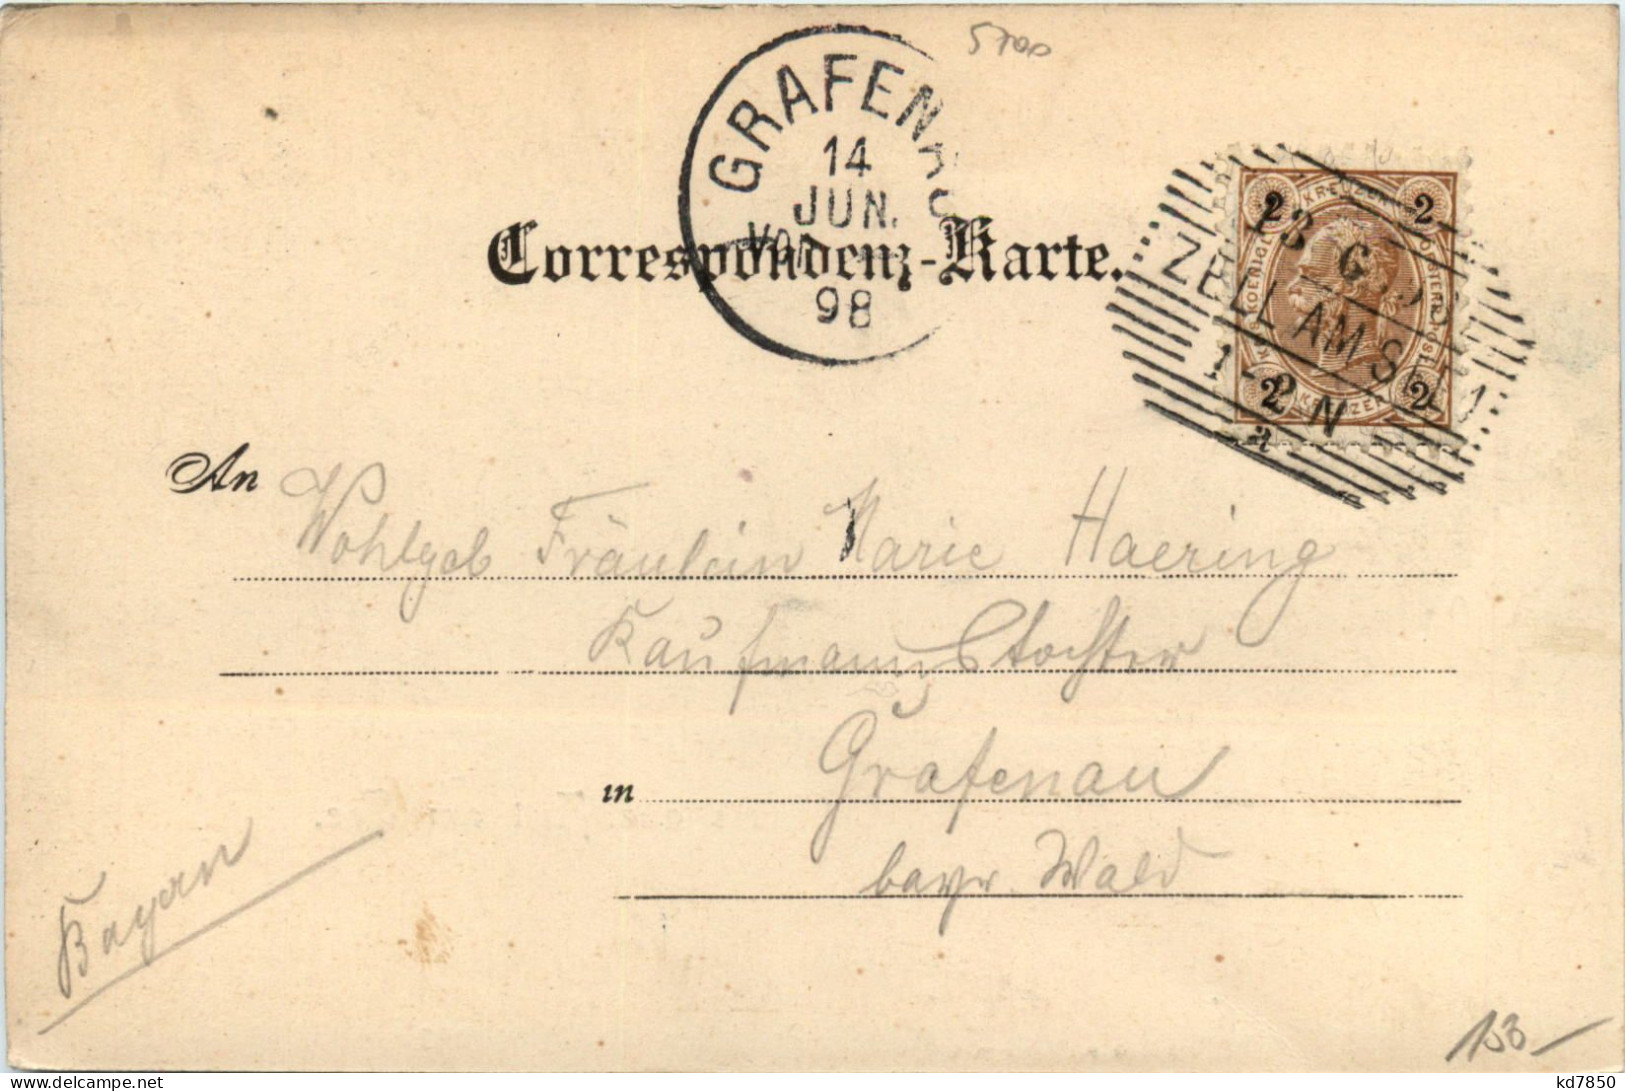 5700
GRAFENAU
14
JUN.
VOR
98
Correspondenz-Karte.
2 KREUZER 2
13 6
ZELL AM SEE
1-2 N
2 KREUZER 2
An Wohlgeb Fräulein Marie Haering
Kaufmannstochter
in Grafenau
bayr. Wald
Bayern
kd7850